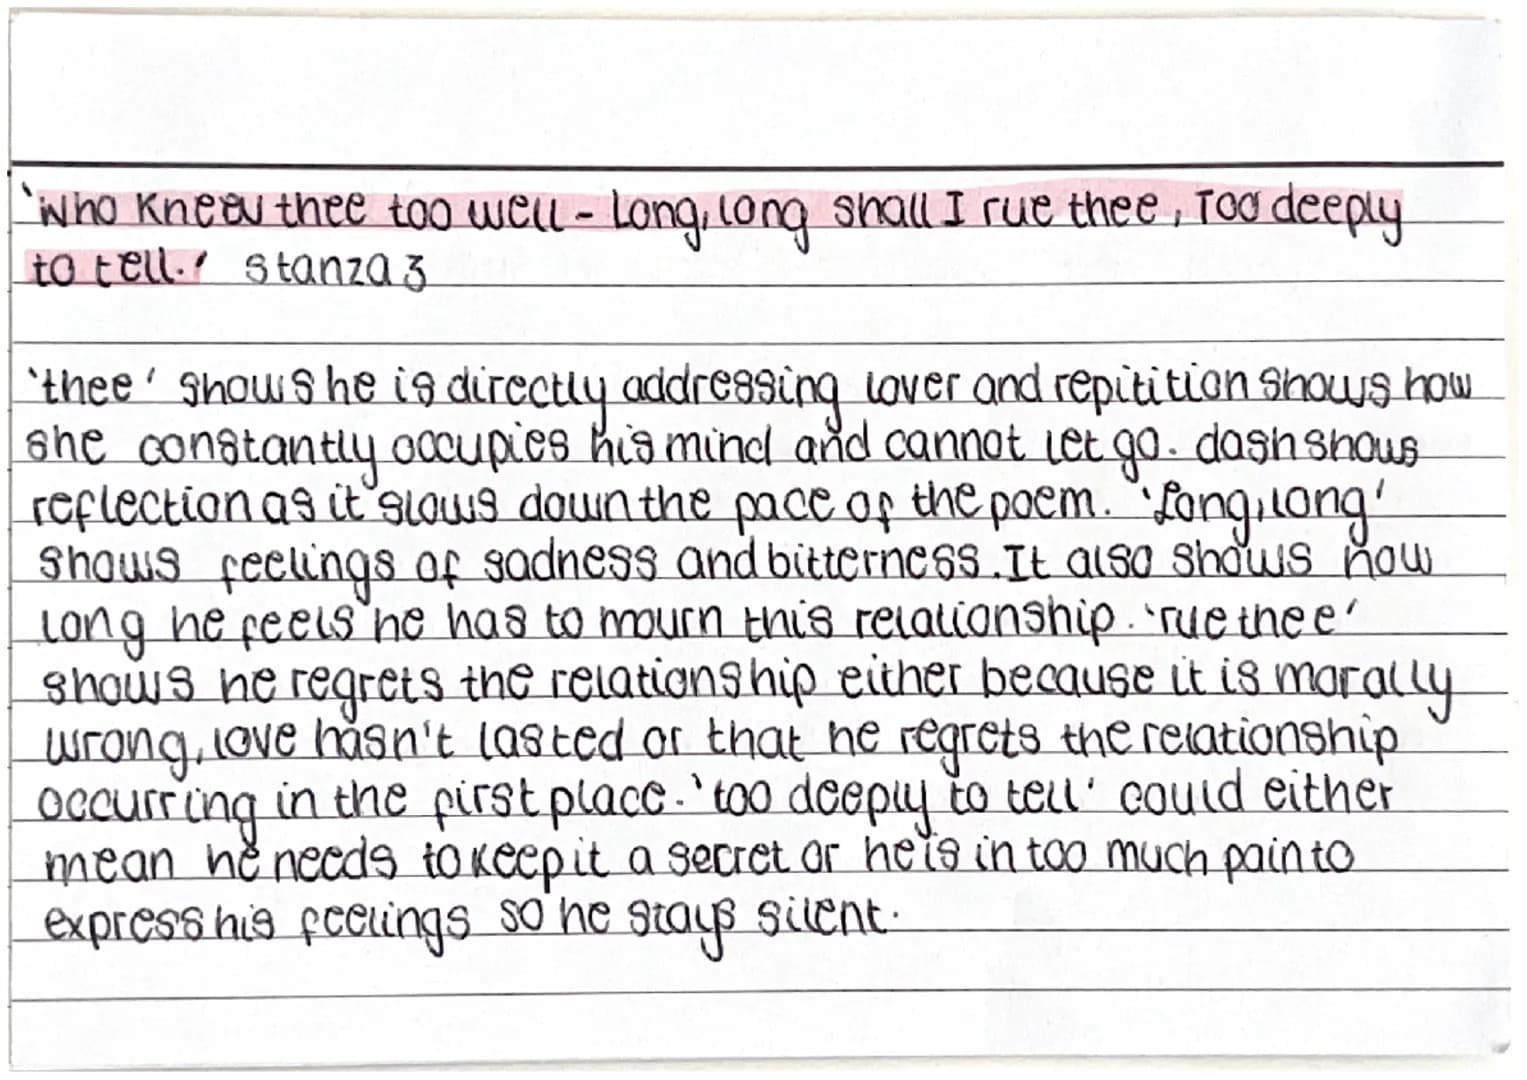 'Who Knew thee too well - Long, long shall I rue thee, Too deeply
to tell.' Stanza 3
'thee' shows he is directly addressing lover and repitition shows how
she constantly occupies his mind and cannot let go. dash shows
reflection as it slows down the pace of the poem. 'Long, long'
shows feelings of sadness and bitterness. It also shows how
long he feels he has to mourn this relationship. 'rue thee'
shows he regrets the relationship either because it is morally
wrong, love hasn't lasted or that he regrets the relationship
occurring in the first place. 'too deeply to tell' could either
mean he needs to keep it a secret or he is in too much pain to
express his feelings so he stays silent.